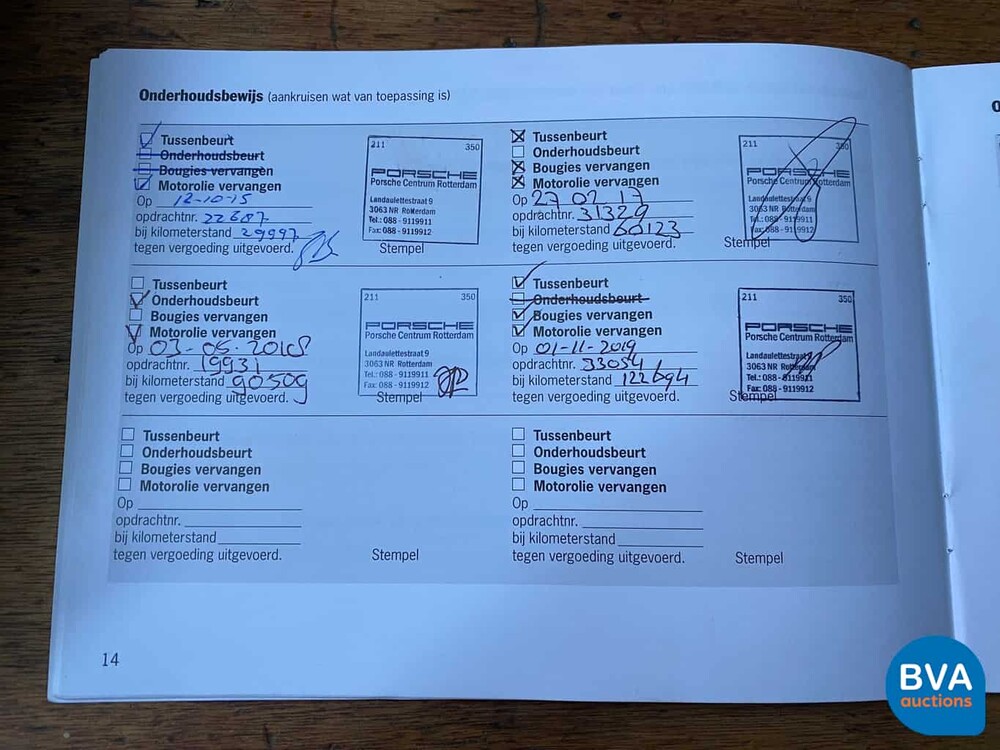 Onderhoudsbewijs (aankruisen wat van toepassing is)
Tussenbeurt
Onderhoudsbeurt
Bougies vervangen
Motorolie vervangen
Op 12-10-15
opdrachtnr. 22687
bij kilometerstand 29997
tegen vergoeding uitgevoerd.
211 350
PORSCHE
Porsche Centrum Rotterdam
Landaulettestraat 9
3063 NR Rotterdam
Tel.: 088 - 9119911
Fax: 088 - 9119912
Stempel
Tussenbeurt
Onderhoudsbeurt
Bougies vervangen
Motorolie vervangen
Op 27 02 17
opdrachtnr. 31329
bij kilometerstand 60123
tegen vergoeding uitgevoerd.
211 350
PORSCHE
Porsche Centrum Rotterdam
Landaulettestraat 9
3063 NR Rotterdam
Tel.: 088 - 9119911
Fax: 088 - 9119912
Stempel
Tussenbeurt
Onderhoudsbeurt
Bougies vervangen
Motorolie vervangen
Op 03-05-2018
opdrachtnr. 19931
bij kilometerstand 90509
tegen vergoeding uitgevoerd.
211 350
PORSCHE
Porsche Centrum Rotterdam
Landaulettestraat 9
3063 NR Rotterdam
Tel.: 088 - 9119911
Fax: 088 - 9119912
Stempel
Tussenbeurt
Onderhoudsbeurt
Bougies vervangen
Motorolie vervangen
Op 01-11-2019
opdrachtnr. 33054
bij kilometerstand 122694
tegen vergoeding uitgevoerd.
211 350
PORSCHE
Porsche Centrum Rotterdam
Landaulettestraat 9
3063 NR Rotterdam
Tel.: 088 - 9119911
Fax: 088 - 9119912
Stempel
Tussenbeurt
Onderhoudsbeurt
Bougies vervangen
Motorolie vervangen
Op
opdrachtnr.
bij kilometerstand
tegen vergoeding uitgevoerd.
Stempel
Tussenbeurt
Onderhoudsbeurt
Bougies vervangen
Motorolie vervangen
Op
opdrachtnr.
bij kilometerstand
tegen vergoeding uitgevoerd.
Stempel
14
BVA
auctions